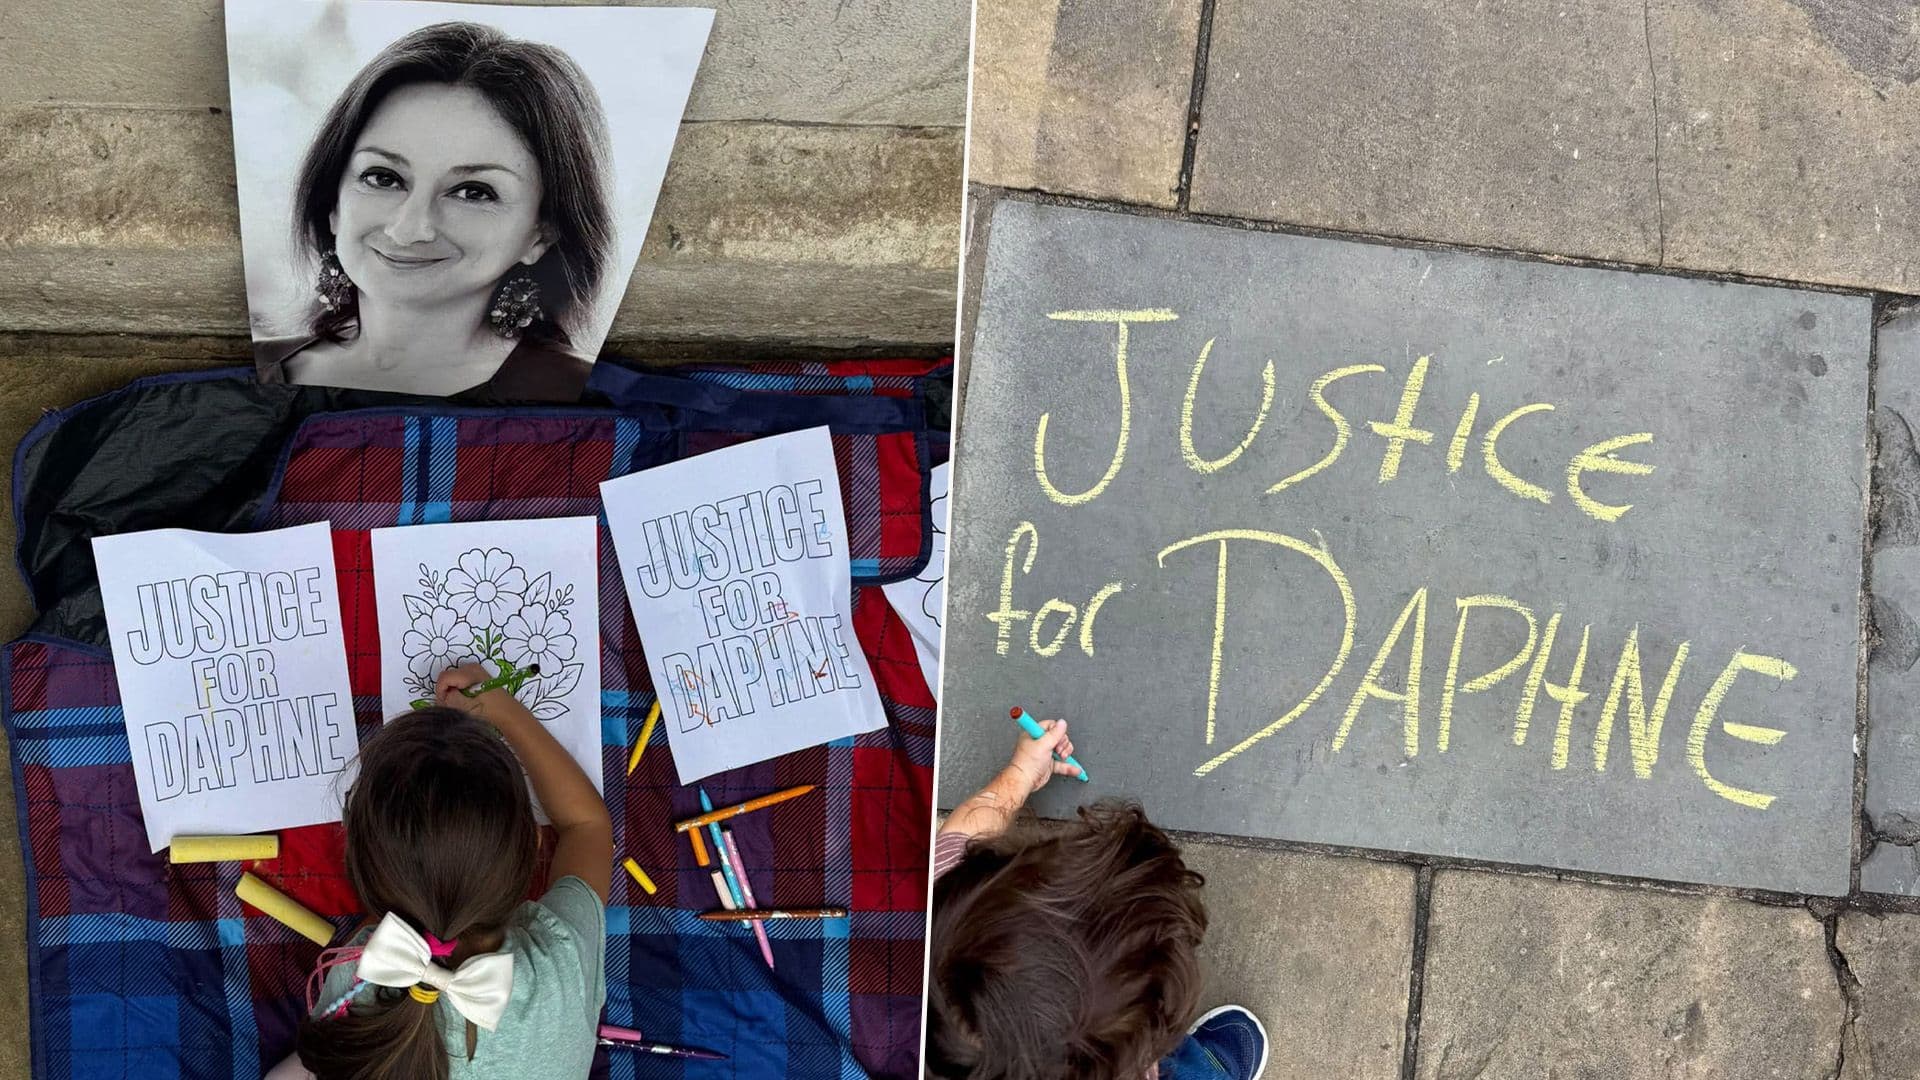 JUSTICE
FOR
DAPHNE
JUSTICE
FOR
DAPHNE
JUSTICE
for DAPHNE